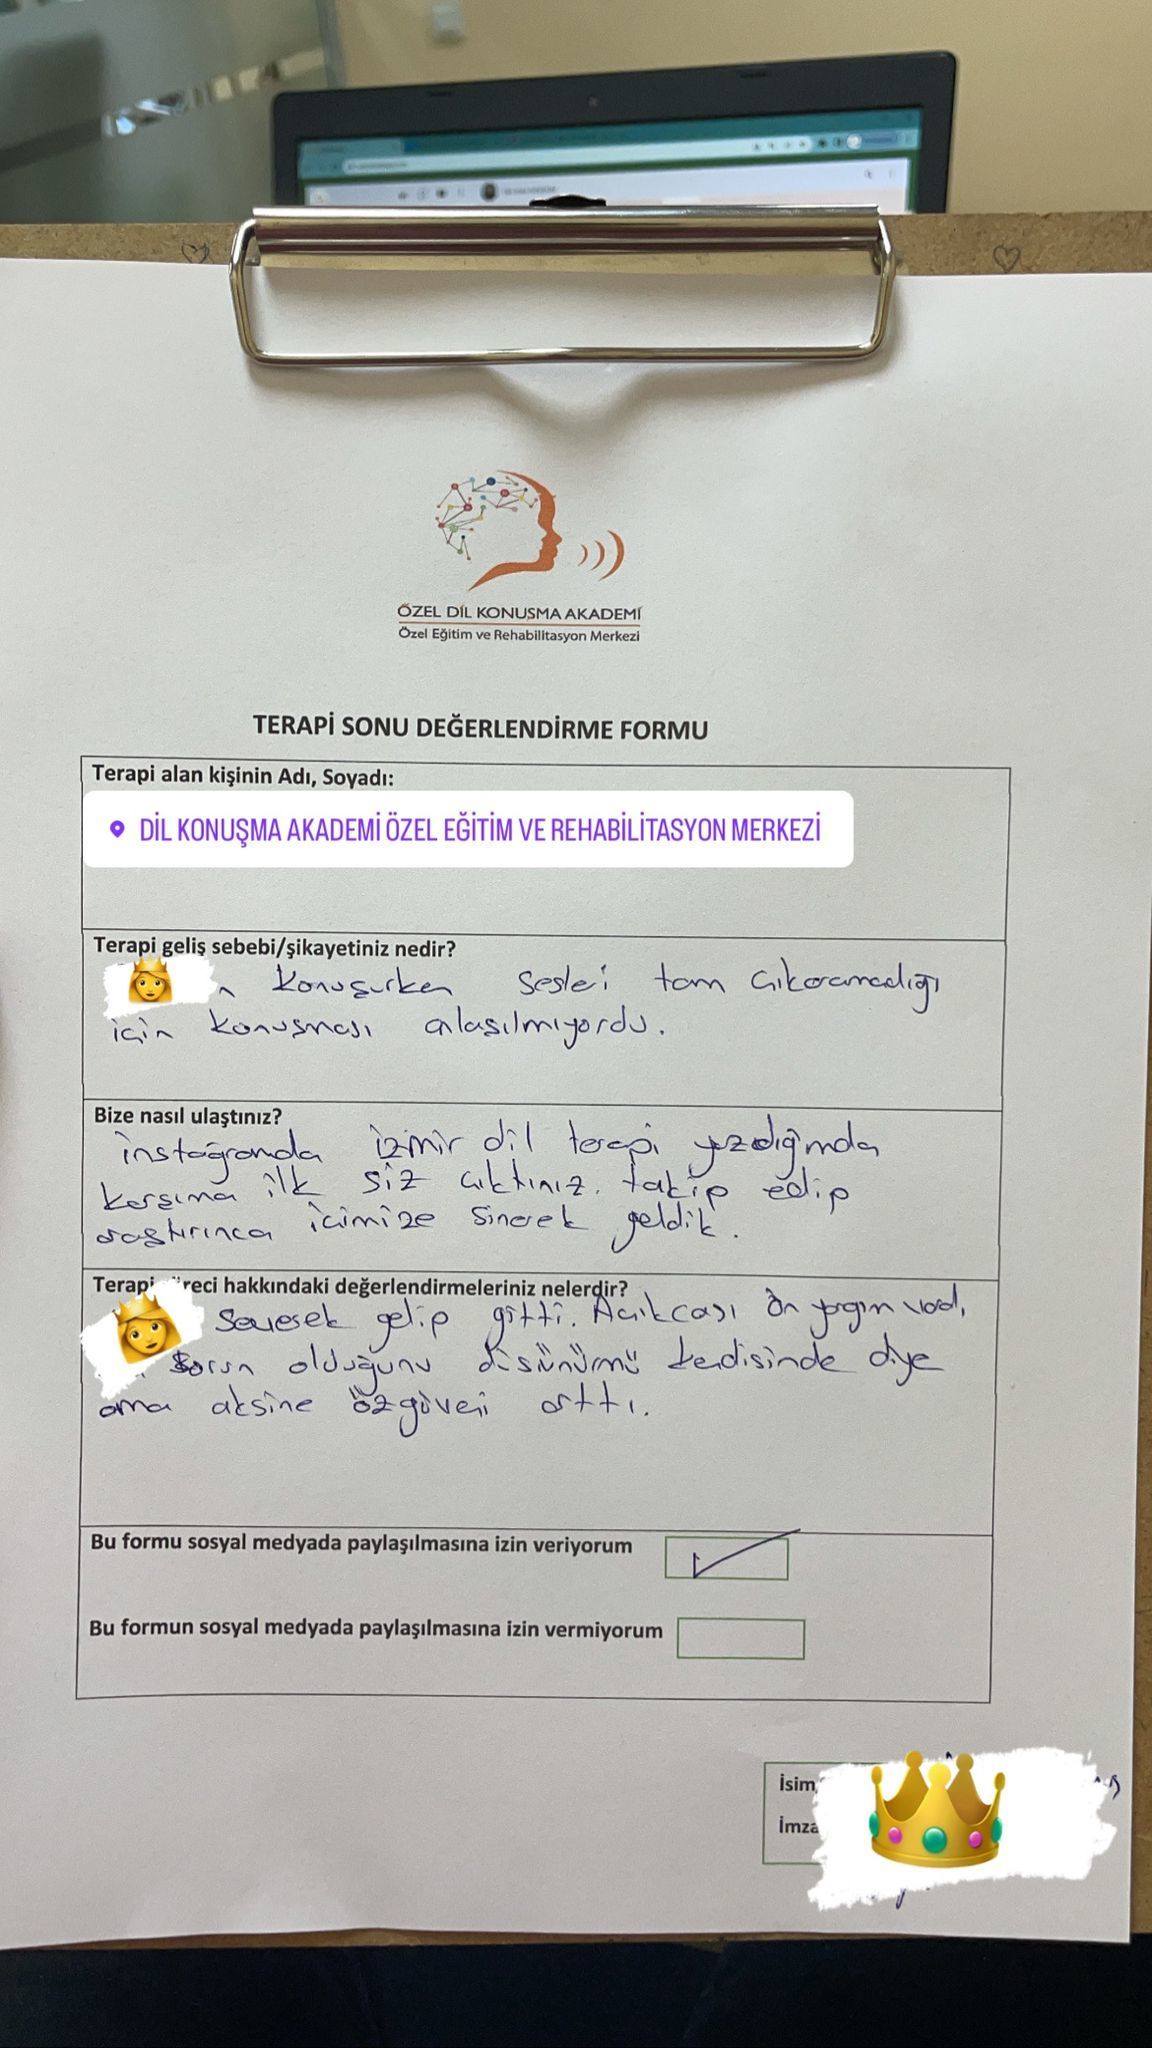 ÖZEL DİL KONUŞMA AKADEMİ
Özel Eğitim ve Rehabilitasyon Merkezi
TERAPİ SONU DEĞERLENDİRME FORMU
Terapi alan kişinin Adı, Soyadı:
DİL KONUŞMA AKADEMİ ÖZEL EĞİTİM VE REHABİLİTASYON MERKEZİ
Terapi geliş sebebi/şikayetiniz nedir?
n konuşurken sesleri tam çıkaramadığı
için konuşması anlaşılmıyordu.
Bize nasıl ulaştınız?
instagramda izmir dil terapi yazdığımda
karşıma ilk siz çıktınız. takip edip
araştırınca içimize sinerek geldik.
Terapi reci hakkındaki değerlendirmeleriniz nelerdir?
Severek gelip gitti. Açıkcası ön yargım vardı,
sorun olduğunu düşünürmü kendisinde diye
ama aksine özgüveni arttı.
Bu formu sosyal medyada paylaşılmasına izin veriyorum
Bu formun sosyal medyada paylaşılmasına izin vermiyorum
İsim
İmza